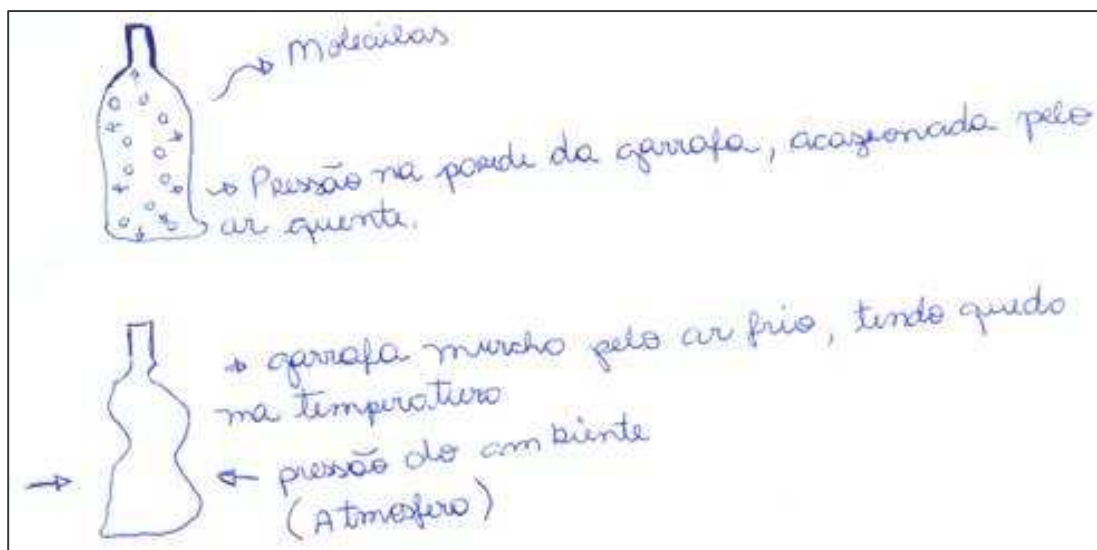 Moléculas
Pressão na parede da garrafa, acazionada pelo
ar quente.
garrafa murcha pelo ar frio, tendo queda
na temperatura
pressão do ambiente
(Atmosfera)